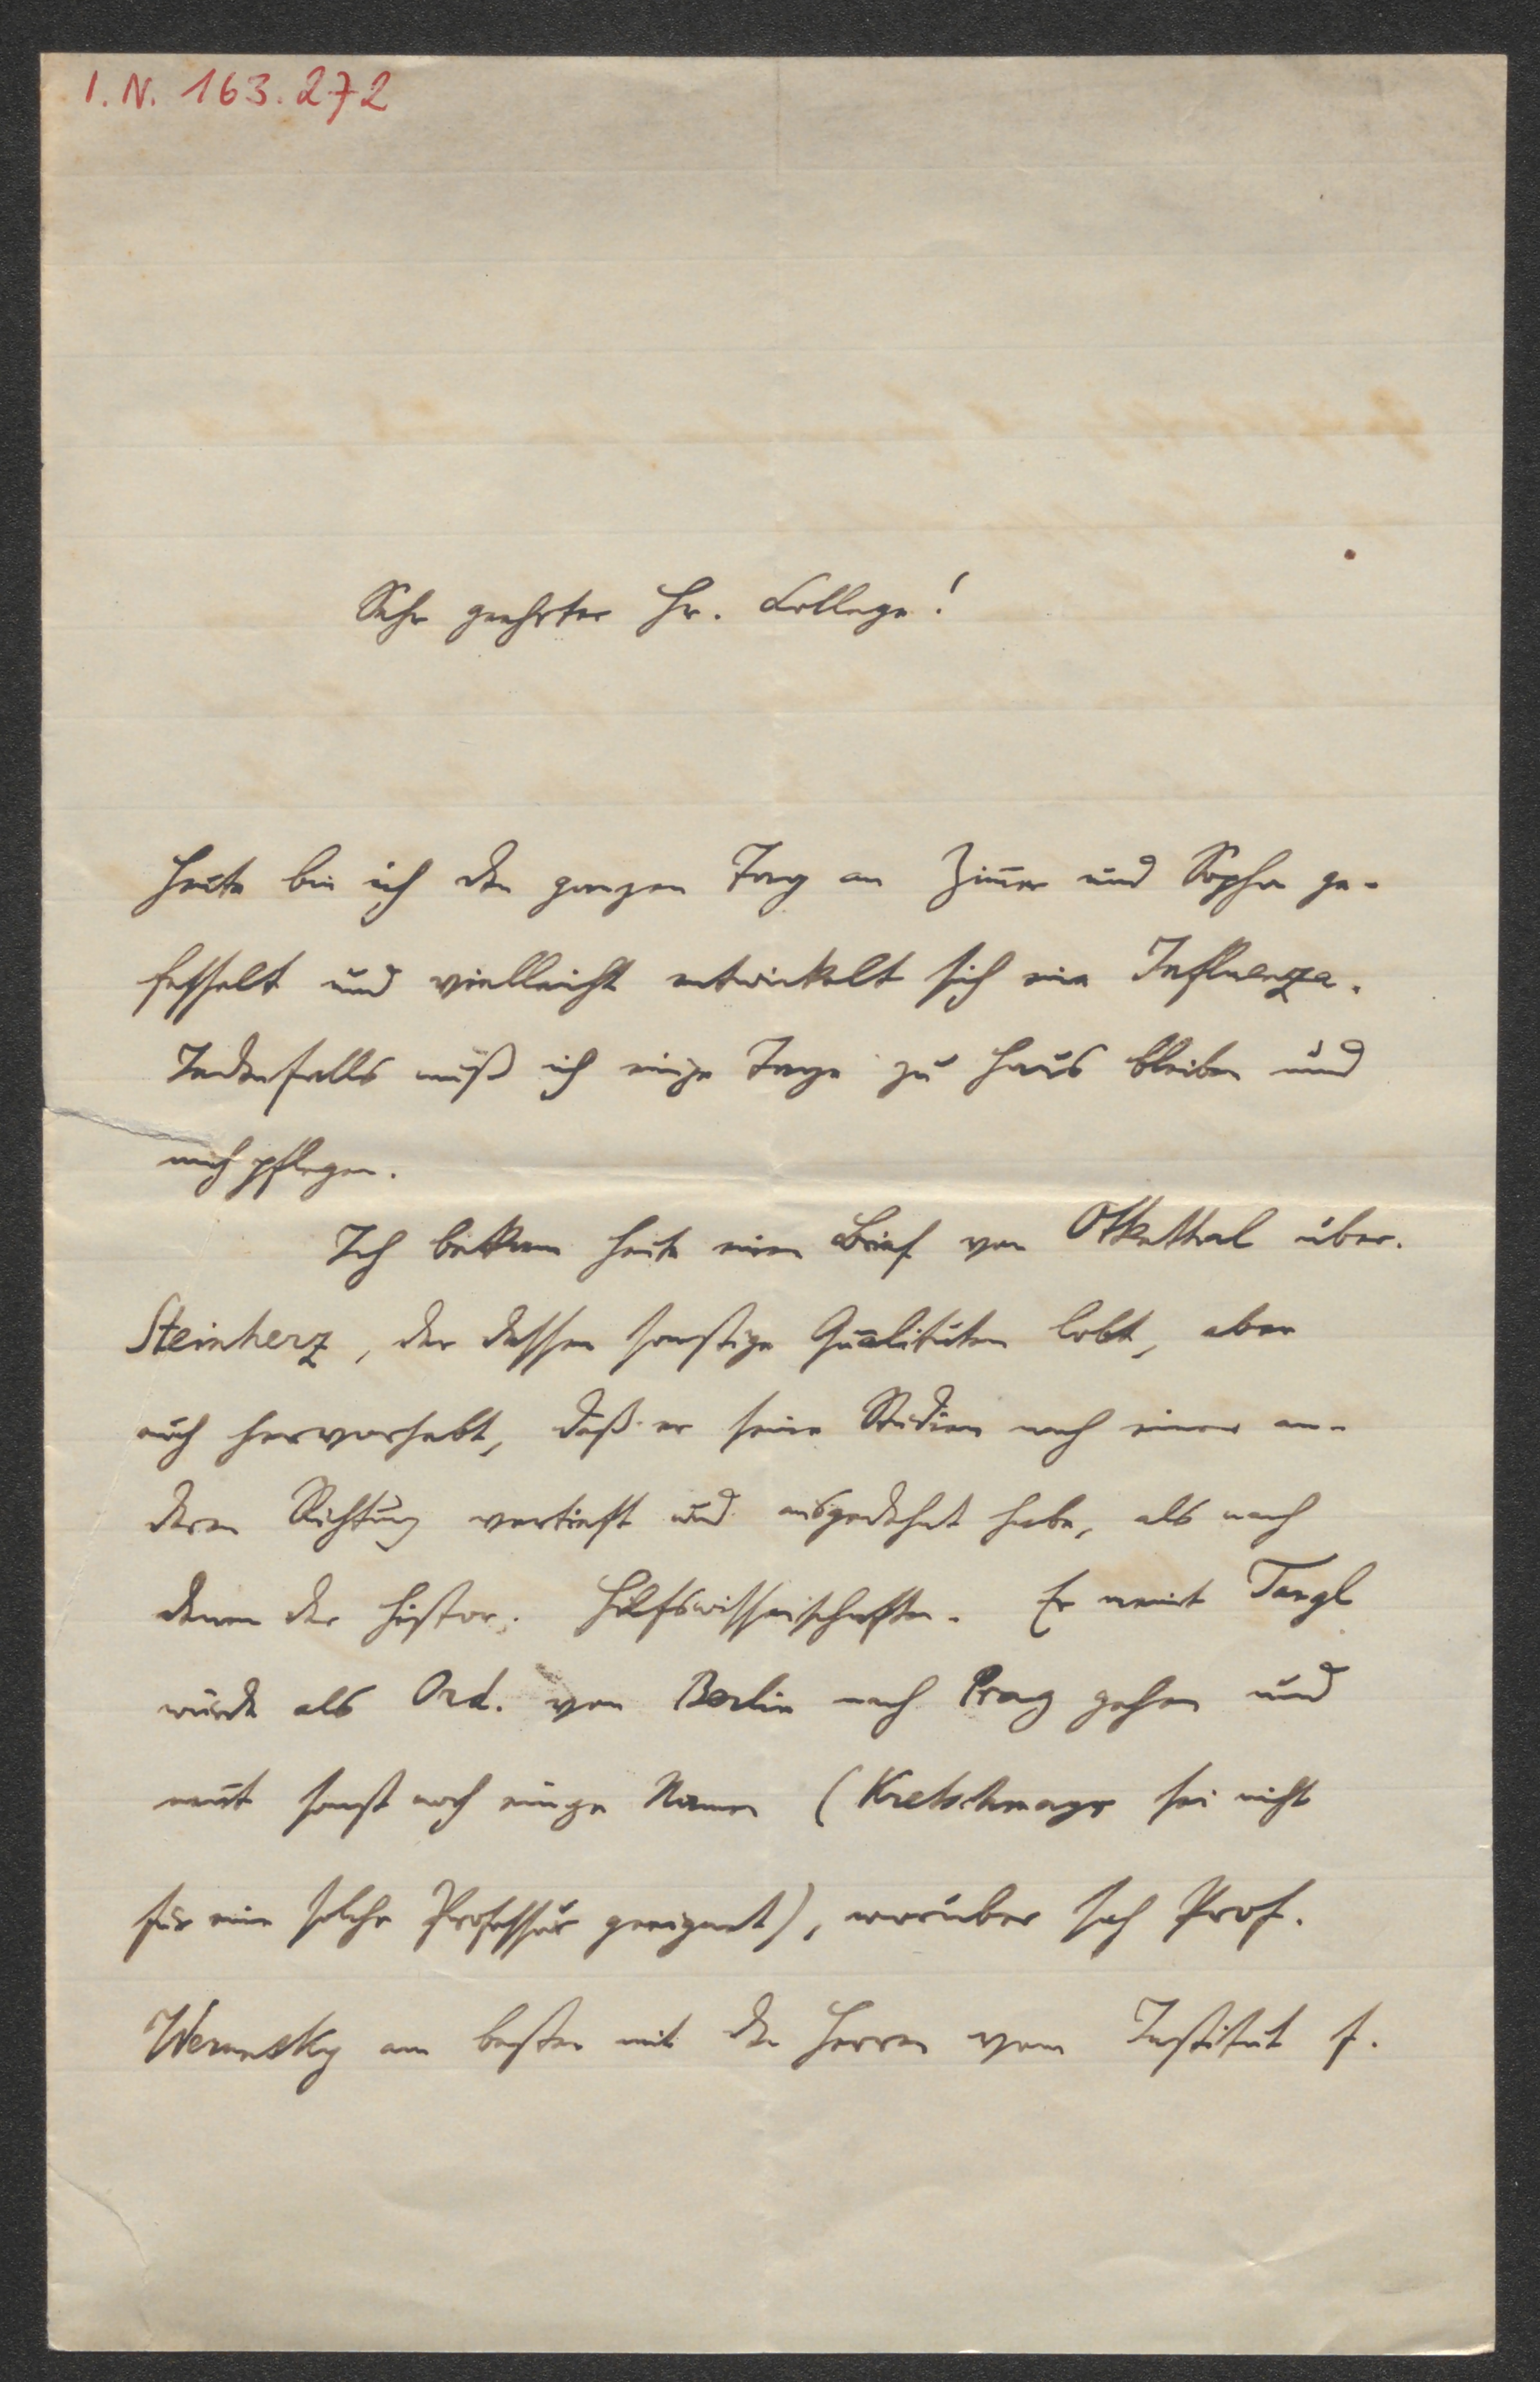 I. N. 163.272
Sehr geehrter Hr. College!
Heute bin ich den ganzen Tag an Zimer und Sopha ge-
fesselt und vielleicht entwickelt sich eine Influenza.
Jedenfalls muß ich einige Tage zu Haus bleiben und
mich pflegen.
Ich bekam heute einen Brief von Ottenthal über
Steinherz, der dessen sonstige Qualitäten lobt, aber
auch hervorhebt, daß er seine Studien nach einer an-
deren Richtung vertieft und ausgedehnt habe, als nach
denen der histor. Hilfswissenschaften. Er meint Tangl
würde als Ord. von Berlin nach Prag gehen und
nent sonst noch einige Namen (Kretschmayr sei nicht
für eine solche Professur geeignet), worüber sich Prof.
Werunsky am besten mit den Herren vom Institut f.